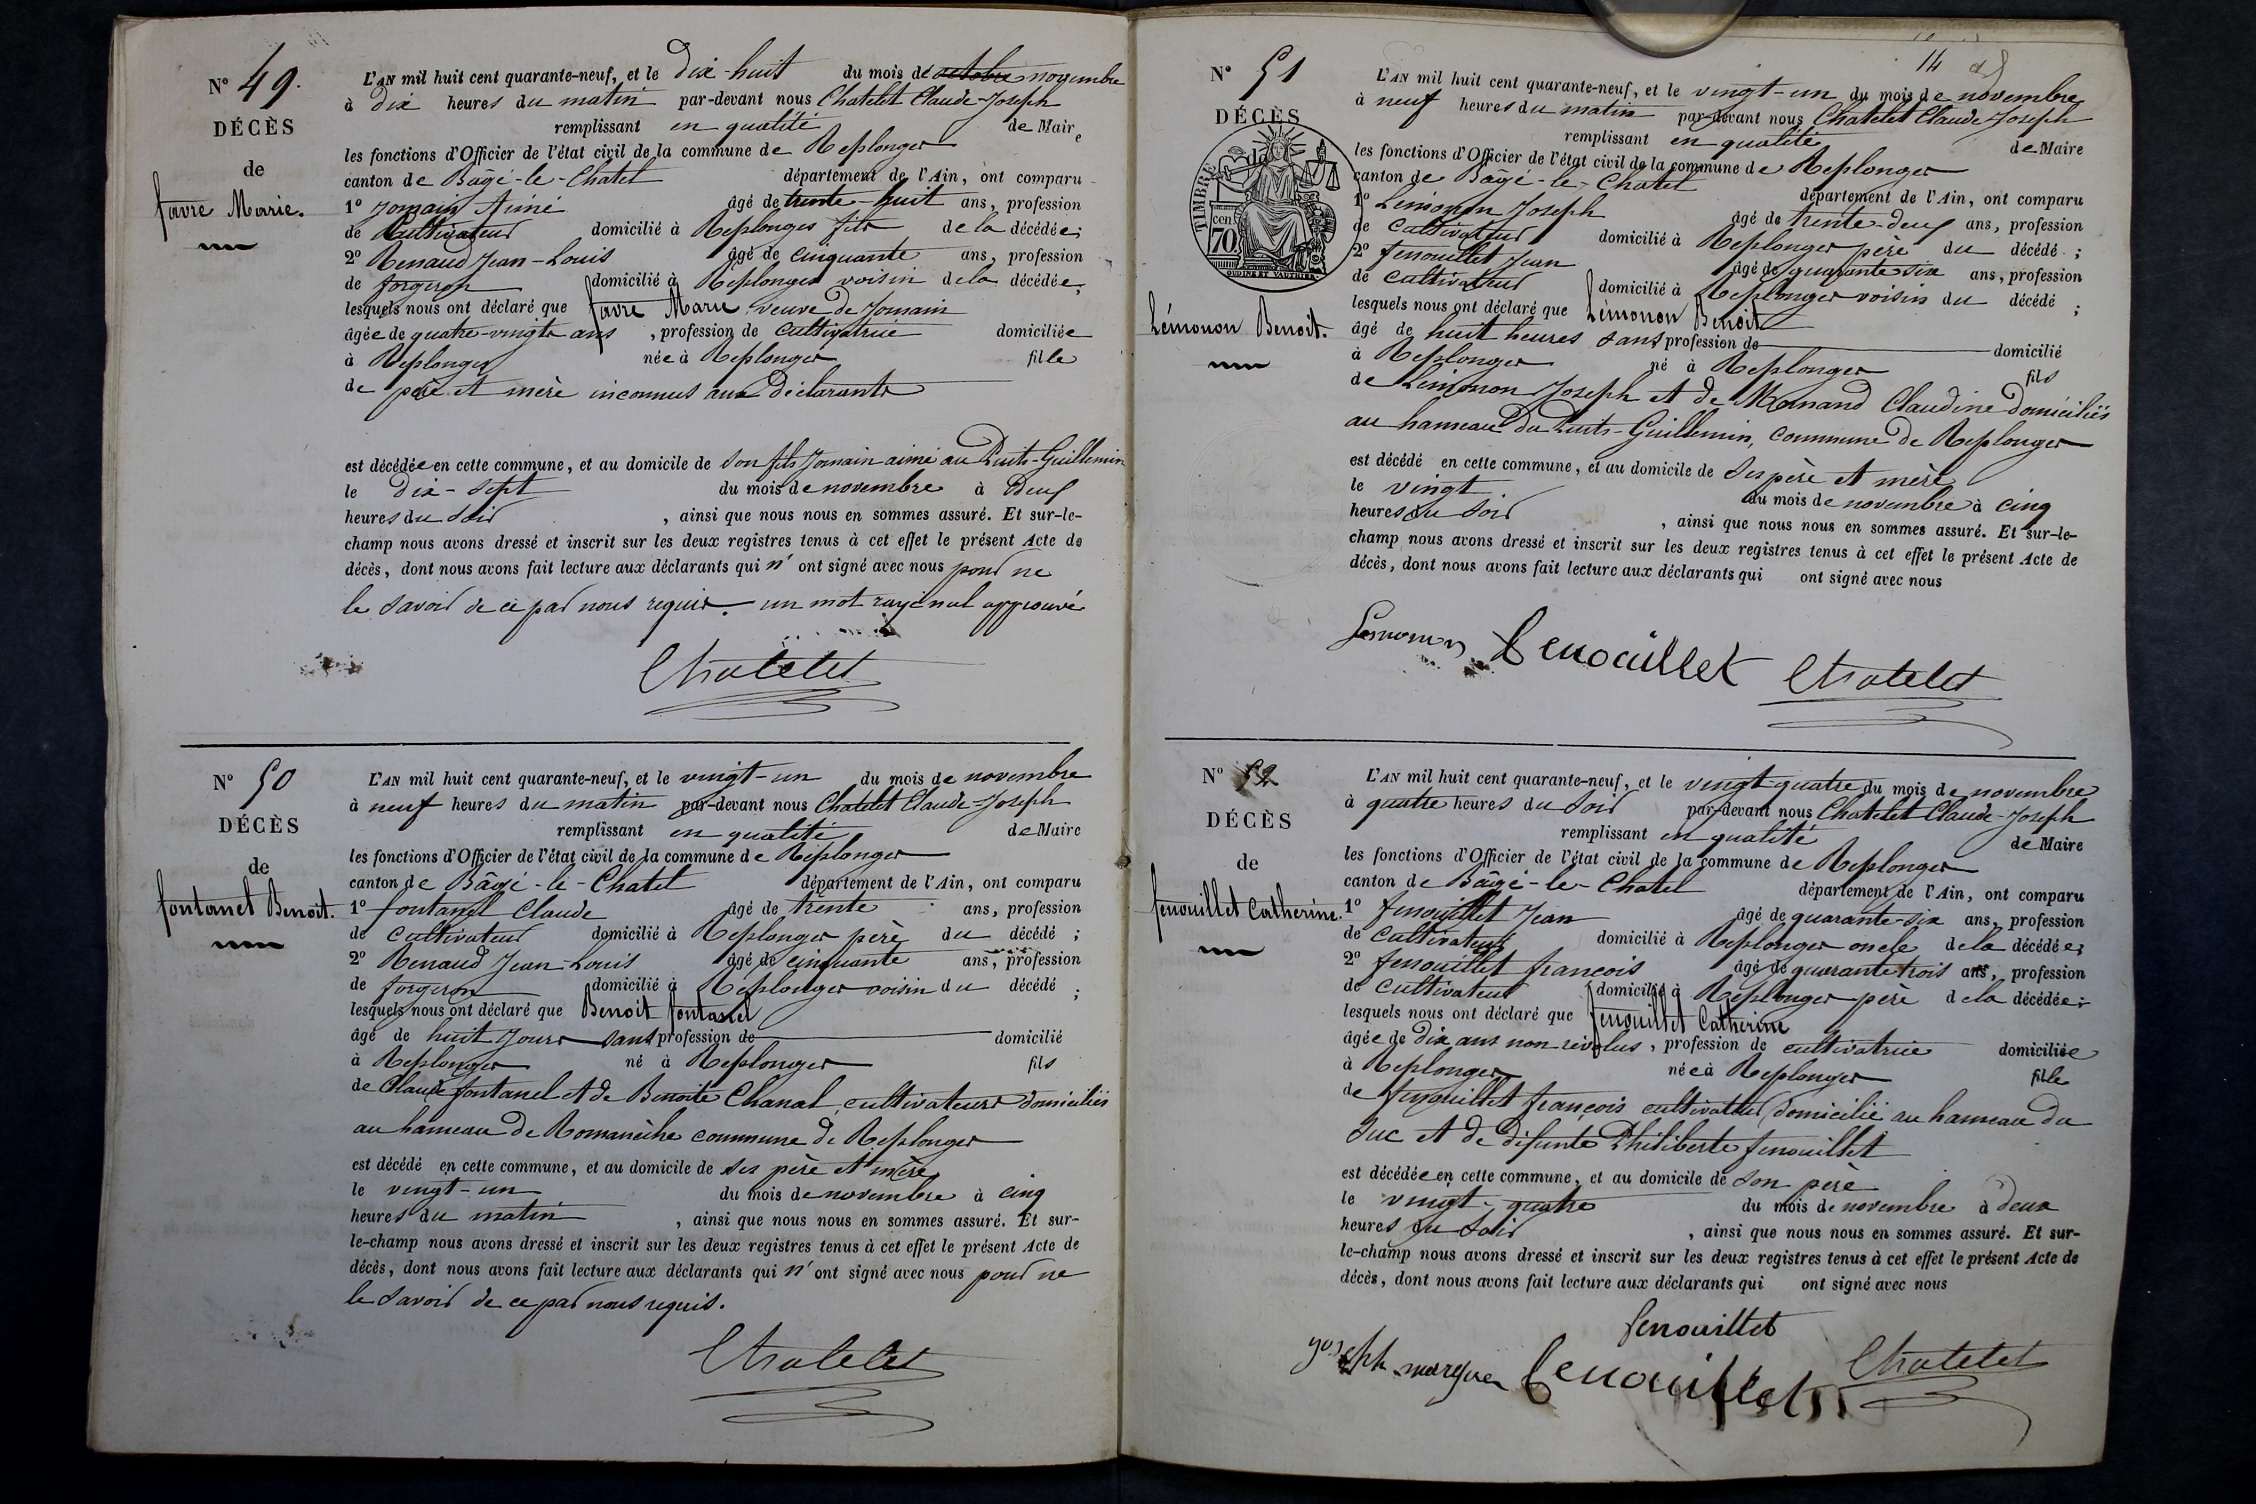 N° 49.
DÉCÈS
de
favre Marie.
L'AN mil huit cent quarante-neuf, et le dix-huit du mois de octobre novembre
à dix heures du matin par-devant nous Chatelet Claude-Joseph
remplissant en qualité de Maire
les fonctions d'Officier de l'état civil de la commune de Replonges
canton de Bâgé-le-Chatel département de l'Ain, ont comparu
1° Jomain Aimé âgé de trente-huit ans, profession
de Cultivateur domicilié à Replonges fils de la décédée;
2° Renaud Jean-Louis âgé de cinquante ans, profession
de forgeron domicilié à Replonges voisin de la décédée;
lesquels nous ont déclaré que favre Marie veuve de Jomain
âgée de quatre-vingts ans, profession de cultivatrice domiciliée
à Replonges née à Replonges fille
de père et mère inconnus aux déclarants
est décédée en cette commune, et au domicile de son fils Jomain aimé au Puits-Guillemin
le dix-sept du mois de novembre à deux
heures du soir, ainsi que nous nous en sommes assuré. Et sur-le-
champ nous avons dressé et inscrit sur les deux registres tenus à cet effet le présent Acte de
décès, dont nous avons fait lecture aux déclarants qui n'ont signé avec nous pour ne
le savoir de ce par nous requis. un mot rayé nul approuvé
Chatelet
N° 50
DÉCÈS
de
fontanel Benoit.
L'AN mil huit cent quarante-neuf, et le vingt-un du mois de novembre
à neuf heures du matin par-devant nous Chatelet Claude-Joseph
remplissant en qualité de Maire
les fonctions d'Officier de l'état civil de la commune de Replonges
canton de Bâgé-le-Chatel département de l'Ain, ont comparu
1° fontanel Claude âgé de trente ans, profession
de cultivateur domicilié à Replonges père du décédé;
2° Renaud Jean-Louis âgé de cinquante ans, profession
de forgeron domicilié à Replonges voisin du décédé;
lesquels nous ont déclaré que Benoit fontanel
âgé de huit jours sans profession de domicilié
à Replonges né à Replonges fils
de Claude fontanel et de Benoite Chanal, cultivateurs domiciliés
au hameau de Romanèche commune de Replonges
est décédé en cette commune, et au domicile de ses père et mère
le vingt-un du mois de novembre à cinq
heures du matin, ainsi que nous nous en sommes assuré. Et sur-
le-champ nous avons dressé et inscrit sur les deux registres tenus à cet effet le présent Acte de
décès, dont nous avons fait lecture aux déclarants qui n'ont signé avec nous pour ne
le savoir de ce par nous requis.
Chatelet
14
N° 51
DÉCÈS
de
TIMBRE
70 cen
OUDINÉ ET VAUTHIER
Lémonon Benoit.
L'AN mil huit cent quarante-neuf, et le vingt-un du mois de novembre
à neuf heures du matin par-devant nous Chatelet Claude Joseph
remplissant en qualité de Maire
les fonctions d'Officier de l'état civil de la commune de Replonges
canton de Bâgé-le-Chatel département de l'Ain, ont comparu
1° Lémonon Joseph âgé de trente-deux ans, profession
de cultivateur domicilié à Replonges père du décédé;
2° fenouillet Jean âgé de quarante six ans, profession
de cultivateur domicilié à Replonges voisin du décédé;
lesquels nous ont déclaré que Lémonon Benoit
âgé de huit heures sans profession de domicilié
à Replonges né à Replonges fils
de Lémonon Joseph et de Mornand Claudine domiciliés
au hameau du Puits-Guillemin, commune de Replonges
est décédé en cette commune, et au domicile de ses père et mère
le vingt du mois de novembre à cinq
heures du soir, ainsi que nous nous en sommes assuré. Et sur-le-
champ nous avons dressé et inscrit sur les deux registres tenus à cet effet le présent Acte de
décès, dont nous avons fait lecture aux déclarants qui ont signé avec nous
Lemonon fenouillet Chatelet
N° 52
DÉCÈS
de
fenouillet Catherine.
L'AN mil huit cent quarante-neuf, et le vingt-quatre du mois de novembre
à quatre heures du soir par-devant nous Chatelet Claude-Joseph
remplissant en qualité de Maire
les fonctions d'Officier de l'état civil de la commune de Replonges
canton de Bâgé-le-Chatel département de l'Ain, ont comparu
1° fenouillet Jean âgé de quarante-six ans, profession
de cultivateur domicilié à Replonges oncle de la décédée;
2° fenouillet françois âgé de quarante trois ans, profession
de cultivateur domicilié à Replonges père de la décédée;
lesquels nous ont déclaré que fenouillet Catherine
âgée de dix ans non révolus, profession de cultivatrice domiciliée
à Replonges née à Replonges fille
de fenouillet françois cultivateur domicilié au hameau du
Suc et de défunte Philiberte fenouillet
est décédée en cette commune, et au domicile de son père
le vingt-quatre du mois de novembre à deux
heures du soir, ainsi que nous nous en sommes assuré. Et sur-
le-champ nous avons dressé et inscrit sur les deux registres tenus à cet effet le présent Acte de
décès, dont nous avons fait lecture aux déclarants qui ont signé avec nous
fenouillet
joseph fenouillet Chatelet